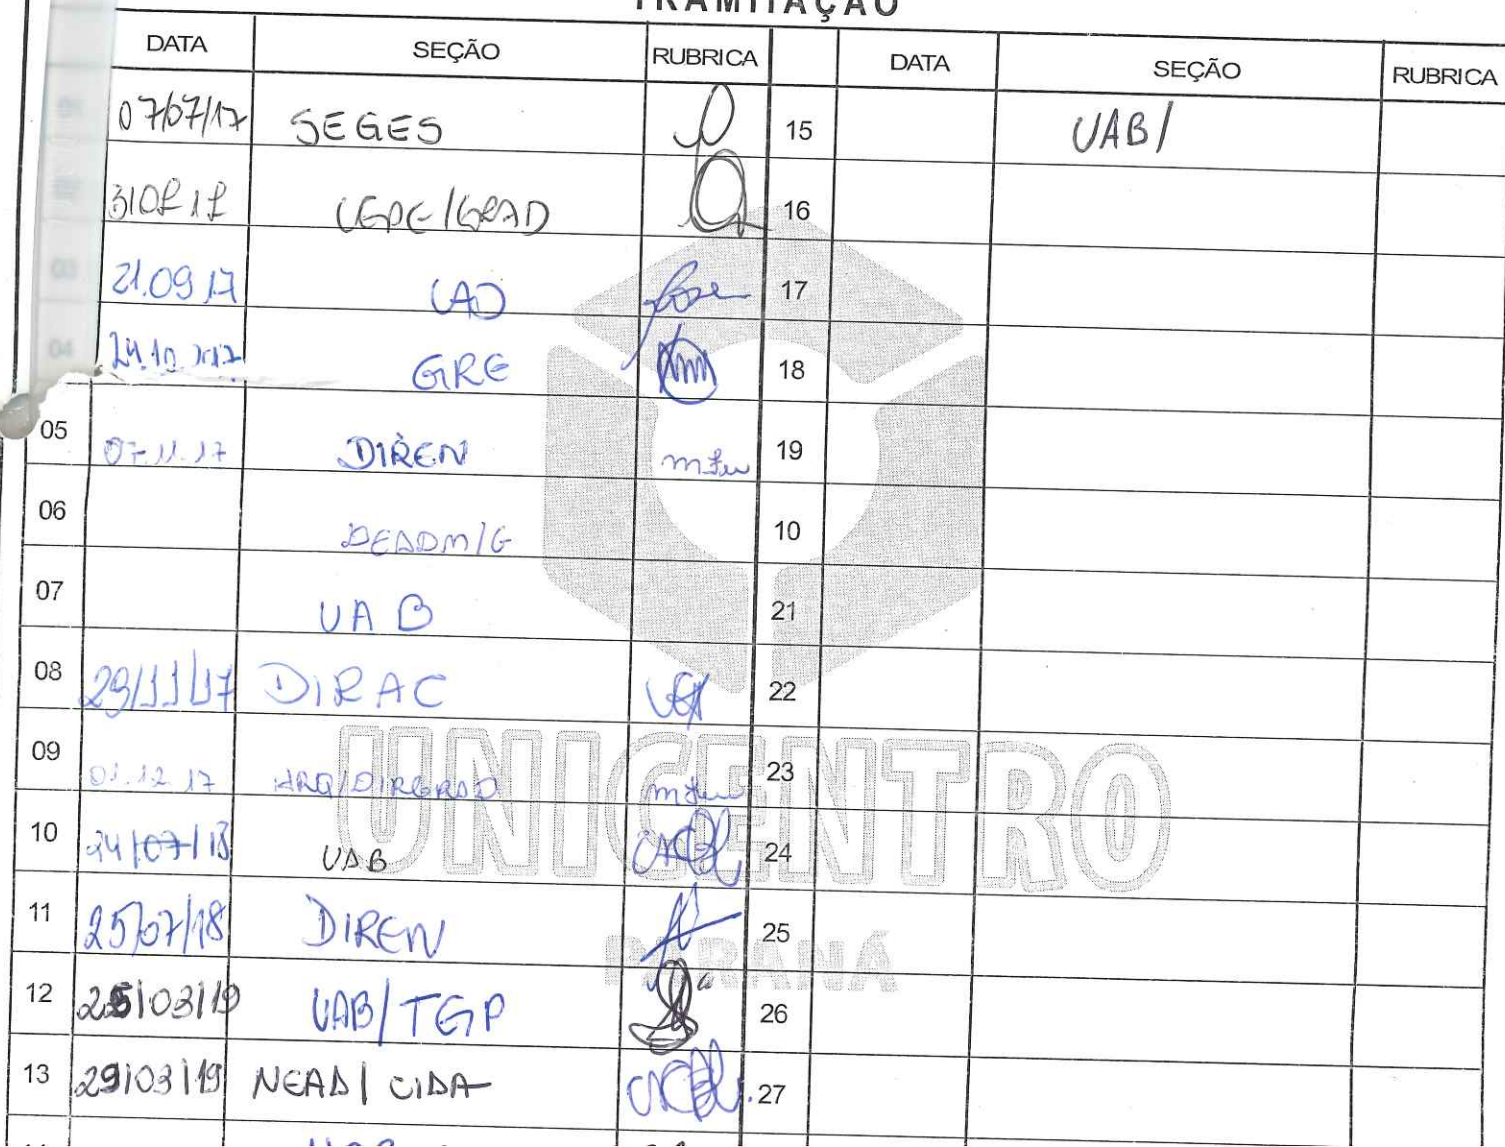 TRAMITAÇÃO
DATA SEÇÃO RUBRICA DATA SEÇÃO RUBRICA
07/07/17 SEGES 15 UAB/
CEPE/GRAD 16
03 21.09.17 CAD 17
04 24.10.2017 GRE 18
05 07.11.17 DIREN 19
06 DEADM/G 10
07 UAB 21
08 29/11/17 DIRAC 22
09 01.12.17 ARQ/DIRGRAD 23
10 24/07/18 UAB 24
11 25/07/18 DIREN 25
12 25/03/19 UAB/TGP 26
13 29/03/19 NEAD/CIDA 27
UNICENTRO
PARANÁ